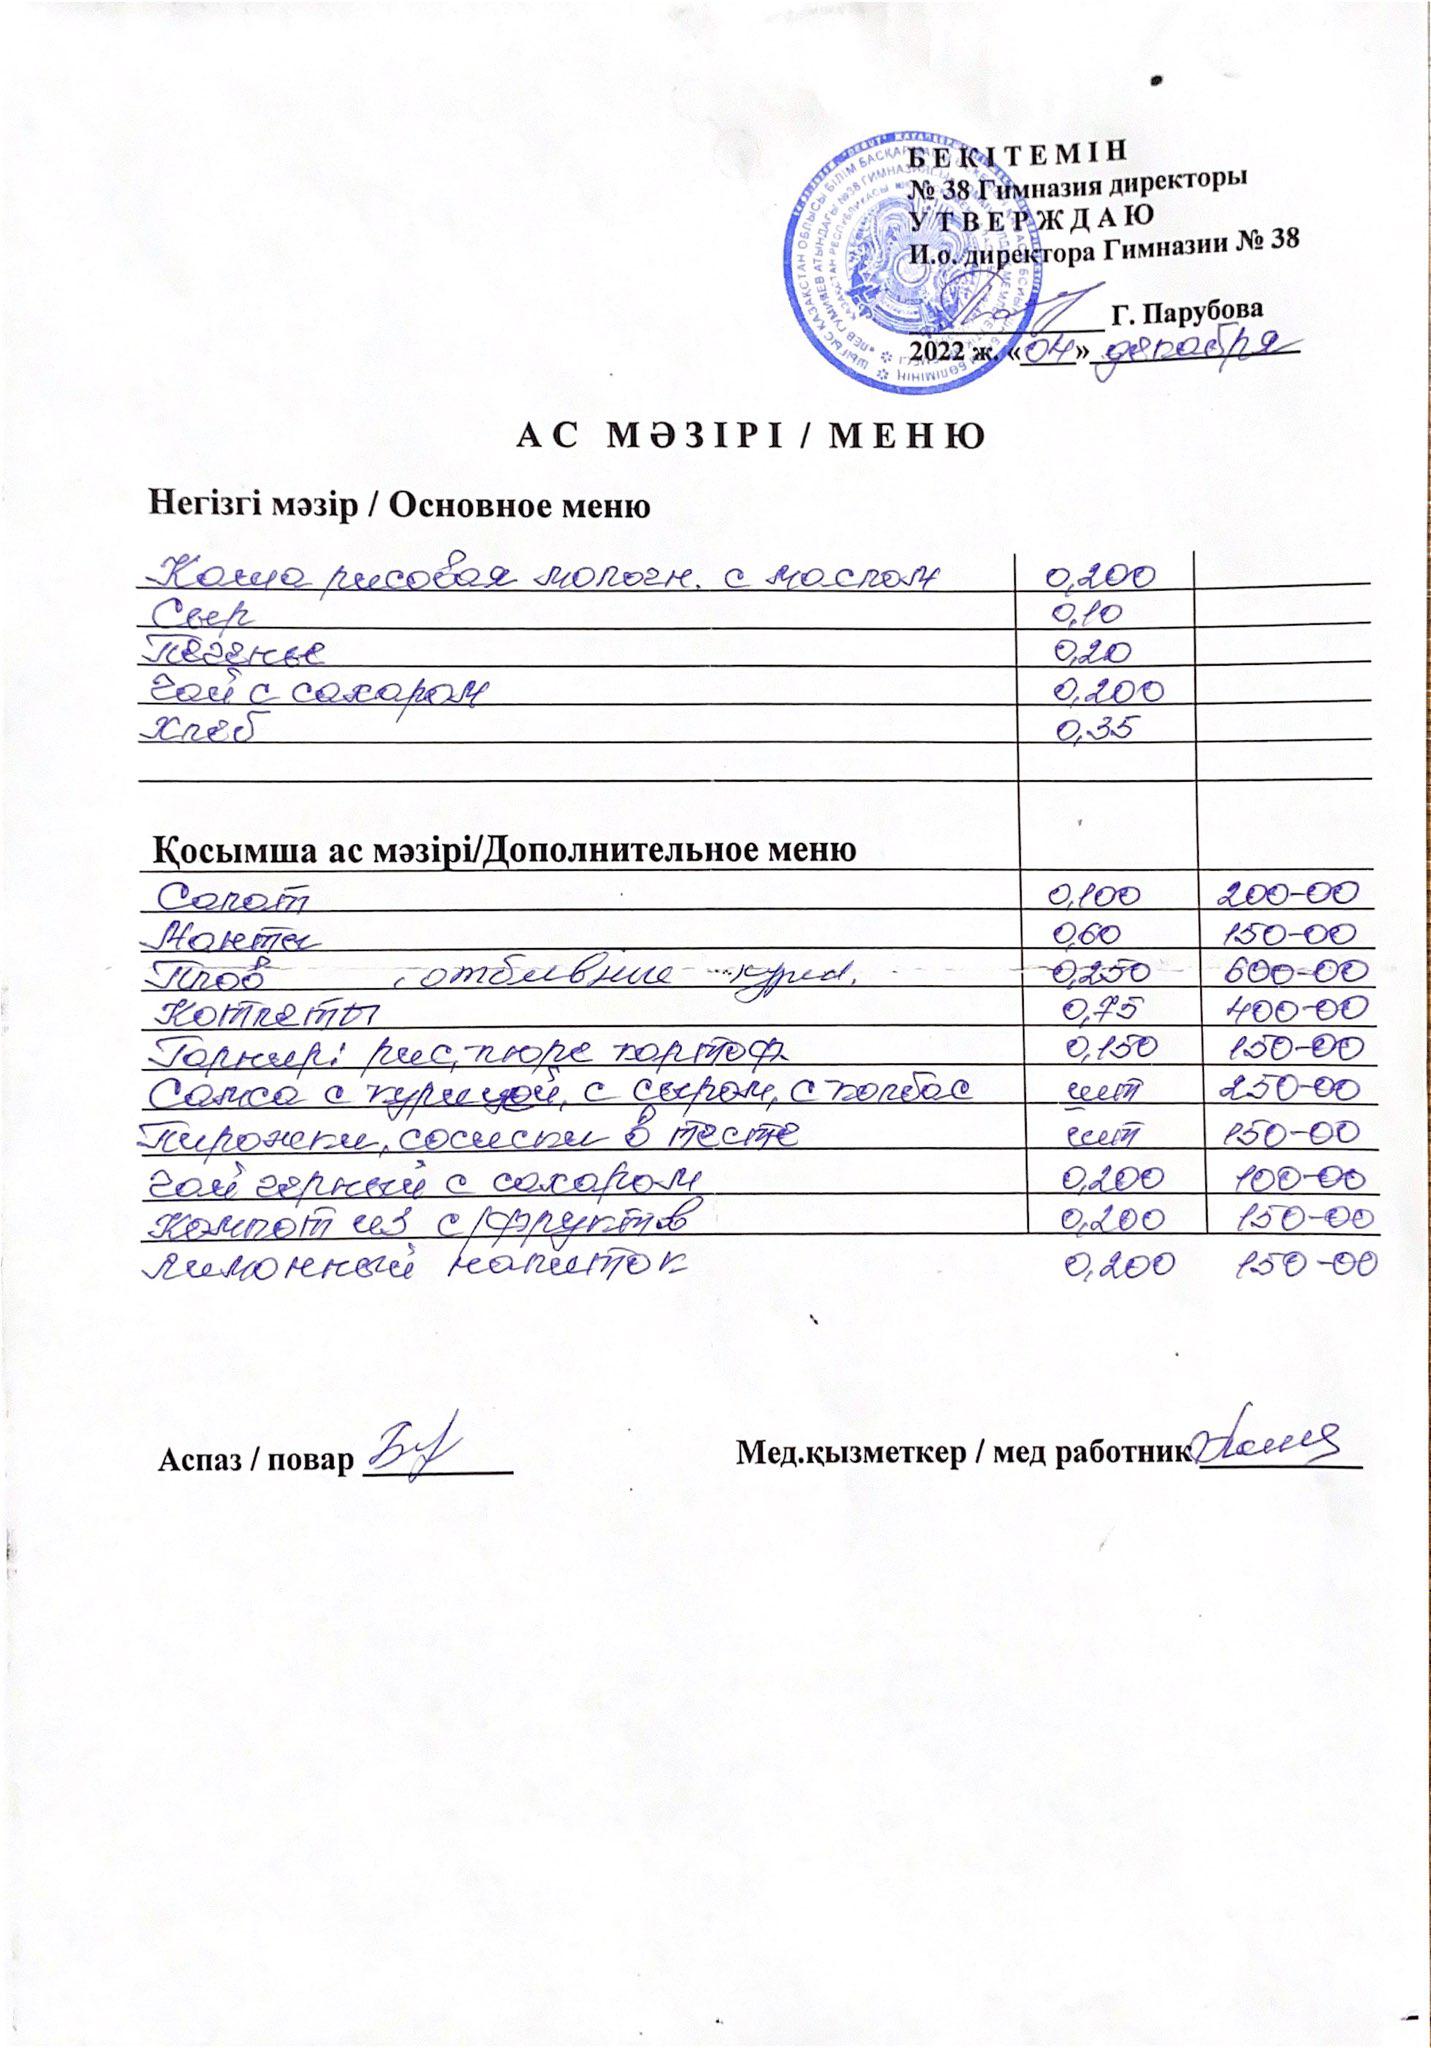 БЕКІТЕМІН
№ 38 Гимназия директоры
УТВЕРЖДАЮ
И.о. директора Гимназии № 38
Г. Парубова
2022 ж. «04» декабря
АС МӘЗІРІ / МЕНЮ
Негізгі мәзір / Основное меню
Каша рисовая молочн. с маслом 0,200
Сыр 0,10
Печенье 0,20
Чай с сахаром 0,200
Хлеб 0,35
Қосымша ас мәзірі/Дополнительное меню
Салат 0,100 200-00
Манты 0,60 150-00
Плов , отбивные курин. 0,250 600-00
Котлеты 0,75 400-00
Гарнир: рис, пюре картоф. 0,150 150-00
Самса с курицей, с сыром, с колбас шт 250-00
Пирожки, сосиски в тесте шт 150-00
Чай черный с сахаром 0,200 100-00
Компот из с/фруктов 0,200 150-00
Лимонный напиток 0,200 150-00
Аспаз / повар Мед.қызметкер / мед работник